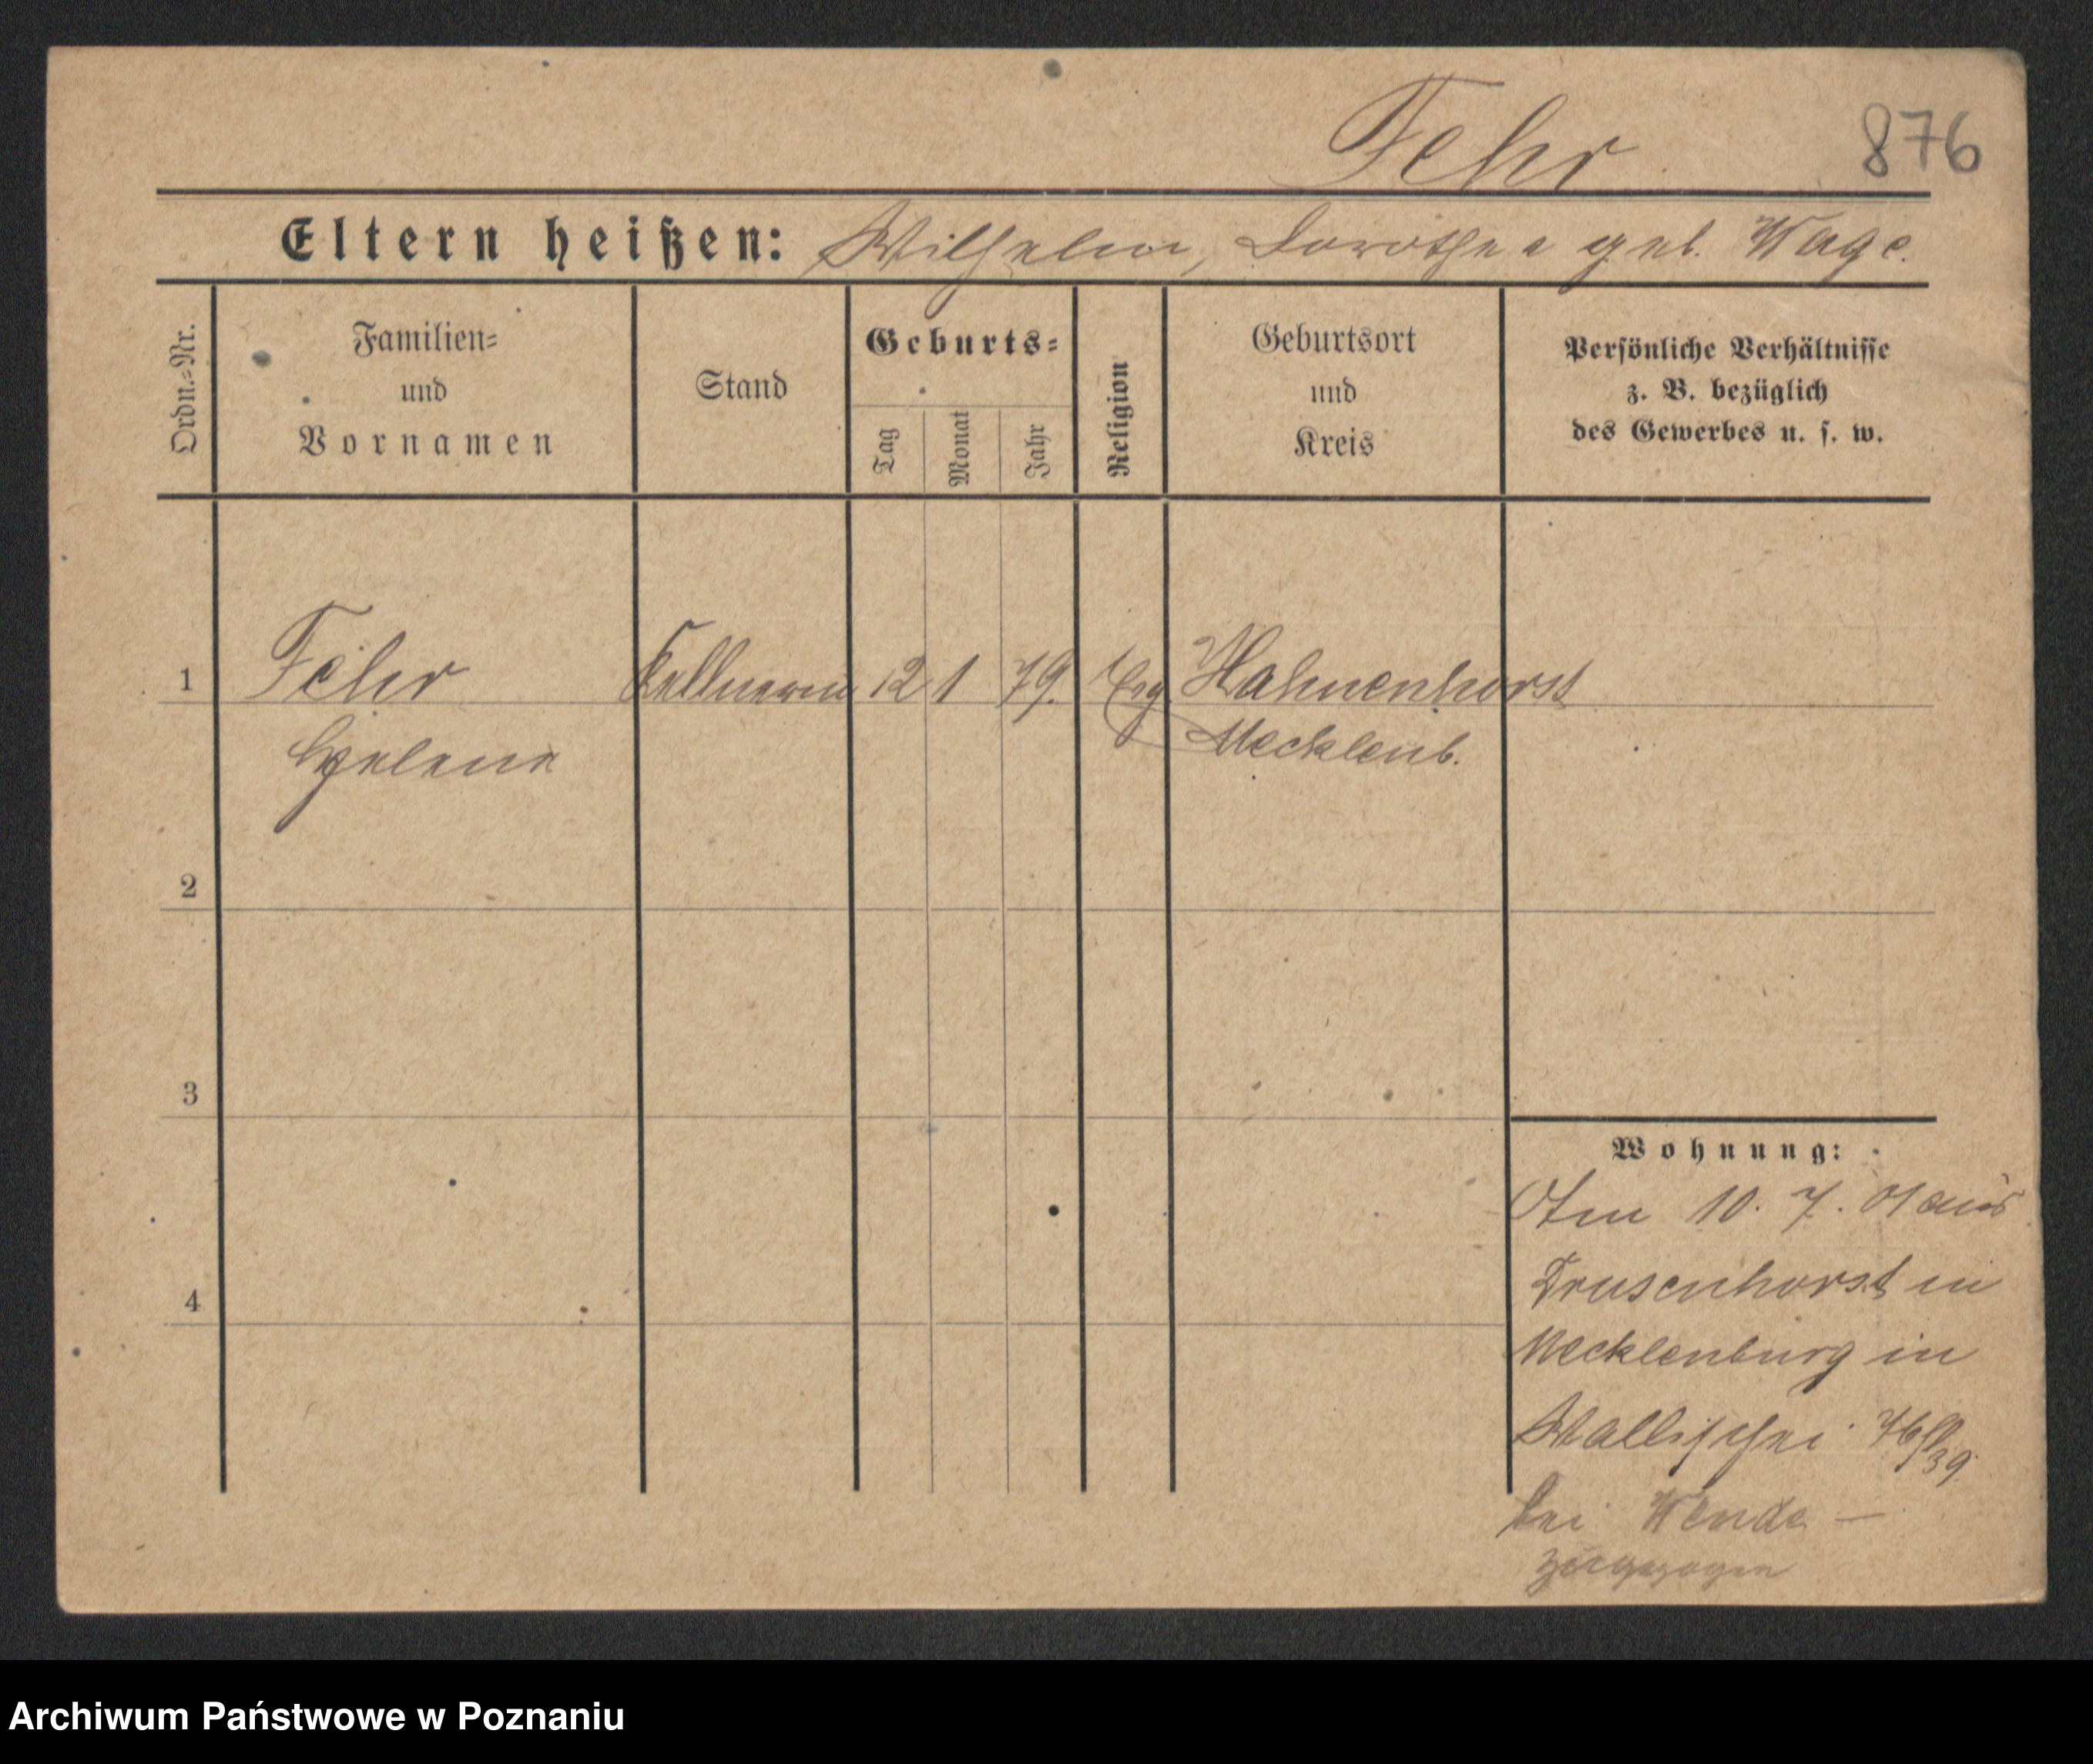 Fehr 876
Eltern heißen: Wilhelm, Dorothea geb. Wage.
Ordn.=Nr.
Familien=
und
Vornamen
Stand
Geburts=
Tag
Monat
Jahr
Religion
Geburtsort
und
Kreis
Persönliche Verhältnisse
z. B. bezüglich
des Gewerbes u. s. w.
1 Fehr Kellnerin 12 1 79. Evg. Hahnenhorst
Helene Mecklenb.
2
3
4
Wohnung:
Am 10. 7. 01 aus
Drusenhorst in
Mecklenburg in
Wallischei 76/39
bei Wende —
zugezogen
Archiwum Państwowe w Poznaniu